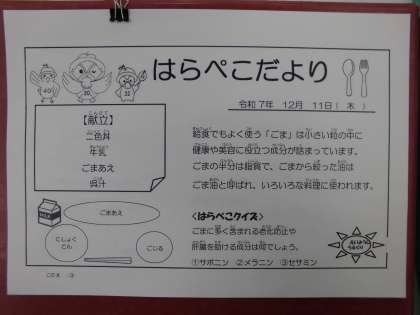 はらぺこだより
令和7年 12月 11日( 木 )
【献立】
二色丼
牛乳
ごまあえ
呉汁
給食でもよく使う「ごま」は小さい粒の中に
健康や美容に役立つ成分が詰まっています。
ごまの半分は脂質で、ごまから絞った油は
ごま油と呼ばれ、いろいろな料理に使われます。
ごまあえ
にしょく
どん
ごじる
<はらぺこクイズ>
ごまに多く含まれる老化防止や
肝臓を助ける成分は何でしょう。
①サポニン ②メラニン ③セサミン